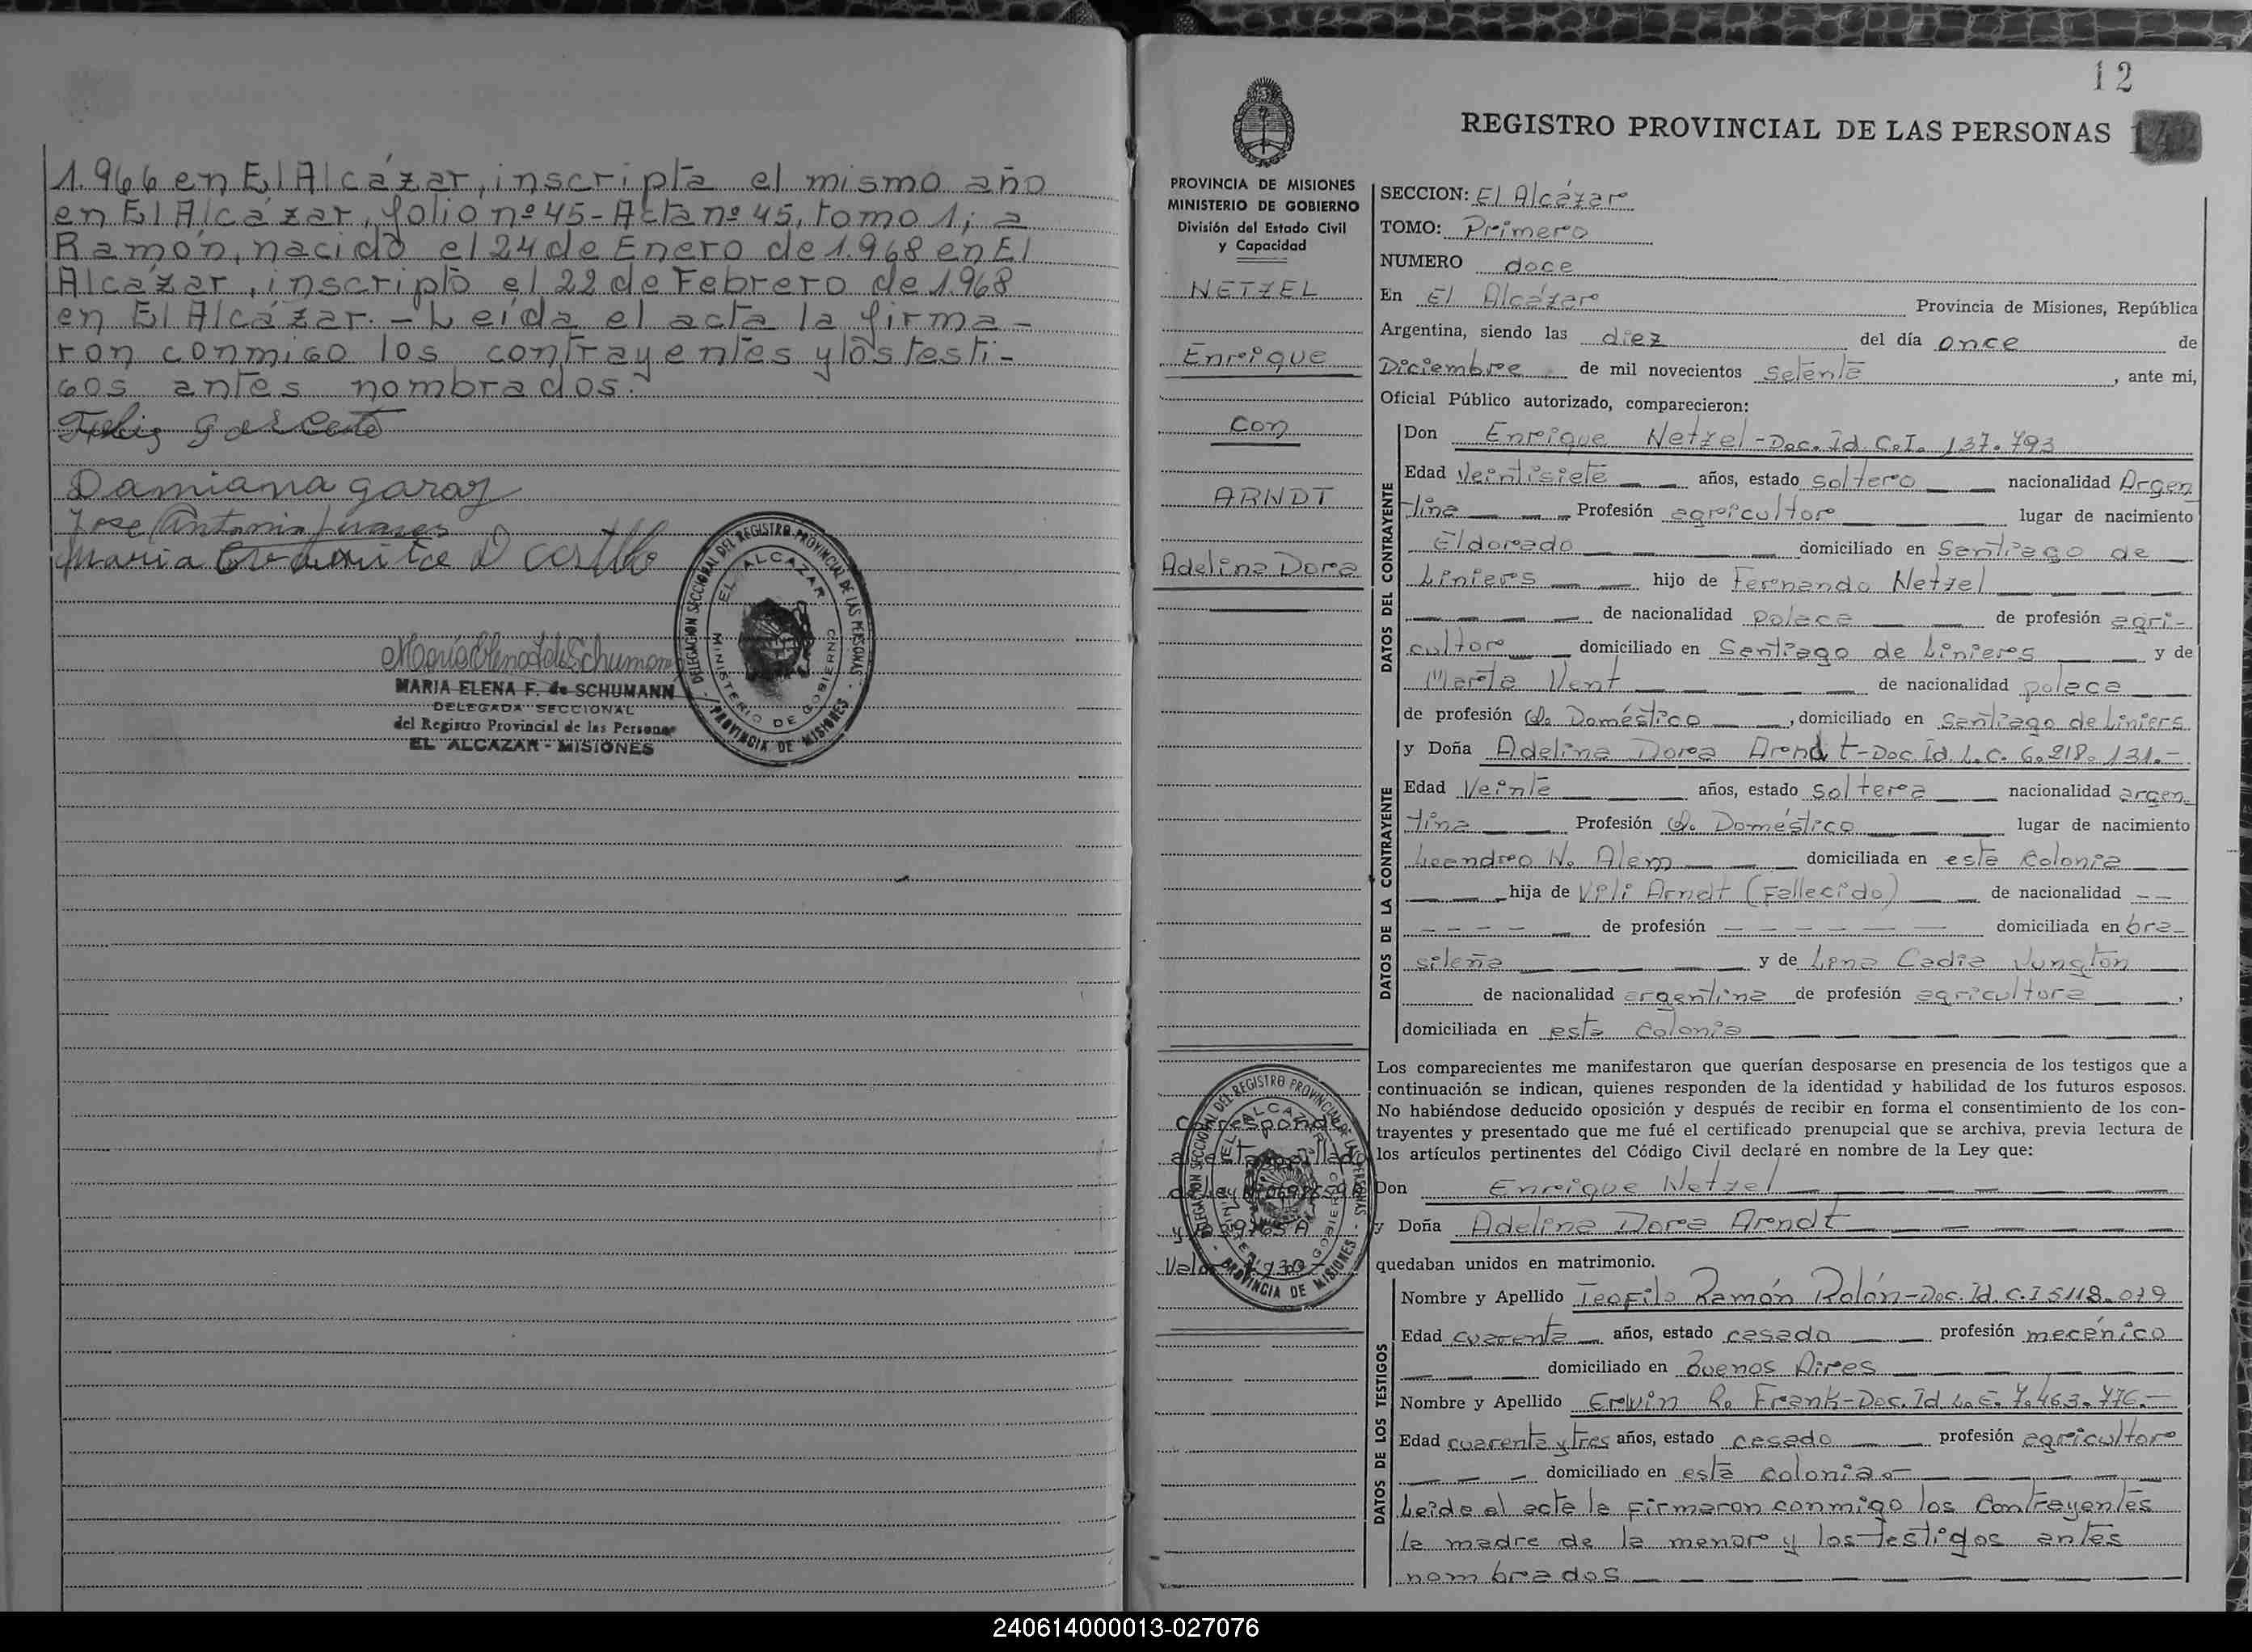 1.966 en El Alcázar, inscripta el mismo año
en El Alcázar, folio nº 45 - Acta nº 45, tomo 1; a
Ramón, nacido el 24 de Enero de 1.968 en El
Alcázar, inscripto el 22 de Febrero de 1.968
en El Alcázar. - Leída el acta la firma-
ron conmigo los contrayentes y los testi-
gos antes nombrados.
Damiana garay
Jose Antonio
Maria
MARIA ELENA F. de SCHUMANN
DELEGADA SECCIONAL
del Registro Provincial de las Personas
EL ALCAZAR - MISIONES
DELEGACION SECCIONAL DEL REGISTRO PROVINCIAL DE LAS PERSONAS
EL ALCAZAR
MINISTERIO DE GOBIERNO
PROVINCIA DE MISIONES
12
REGISTRO PROVINCIAL DE LAS PERSONAS 142
PROVINCIA DE MISIONES
MINISTERIO DE GOBIERNO
División del Estado Civil
y Capacidad
NETZEL
Enrique
con
ARNDT
Adelina Dora
Corresponde
Valor
DELEGACION SECCIONAL DEL REGISTRO PROVINCIAL DE LAS PERSONAS
EL ALCAZAR
MINISTERIO DE GOBIERNO
PROVINCIA DE MISIONES
SECCION: El Alcázar
TOMO: Primero
NUMERO doce
En El Alcázar Provincia de Misiones, República
Argentina, siendo las diez del día once de
Diciembre de mil novecientos setenta, ante mi,
Oficial Público autorizado, comparecieron:
DATOS DEL CONTRAYENTE
Don Enrique Netzel - Doc. Id. C.I. 137.793
Edad Veintisiete años, estado soltero nacionalidad Argen
tina Profesión agricultor lugar de nacimiento
Eldorado domiciliado en Santiago de
Liniers hijo de Fernando Netzel
de nacionalidad polaca de profesión agri-
cultor domiciliado en Santiago de Liniers y de
Marta Vent de nacionalidad polaca
de profesión Q. Doméstico, domiciliado en Santiago de Liniers
DATOS DE LA CONTRAYENTE
y Doña Adelina Dora Arndt - Doc. Id. L.C. 6.218.131.-
Edad Veinte años, estado soltera nacionalidad argen
tina Profesión Q. Doméstico lugar de nacimiento
Leandro N. Alem domiciliada en esta Colonia
hija de Vili Arndt (Fallecido) de nacionalidad --
de profesión domiciliada en bra-
sileña y de Lena Cadia Jungton
de nacionalidad argentina de profesión agricultora,
domiciliada en esta Colonia
Los comparecientes me manifestaron que querían desposarse en presencia de los testigos que a
continuación se indican, quienes responden de la identidad y habilidad de los futuros esposos.
No habiéndose deducido oposición y después de recibir en forma el consentimiento de los con-
trayentes y presentado que me fué el certificado prenupcial que se archiva, previa lectura de
los artículos pertinentes del Código Civil declaré en nombre de la Ley que:
Don Enrique Netzel
y Doña Adelina Dora Arndt
quedaban unidos en matrimonio.
DATOS DE LOS TESTIGOS
Nombre y Apellido Teofilo Ramón Rolón - Doc. Id. C.I 5118.079
Edad cuarenta años, estado casado profesión mecánico
domiciliado en Buenos Aires
Nombre y Apellido Erwin R. Frank - Doc. Id L.E. 7.463.776.-
Edad cuarenta y tres años, estado casado profesión agricultor
domiciliado en esta colonia.-
Leída el acta la firmaron conmigo los Contrayentes
la madre de la menor y los testigos antes
nombrados
240614000013-027076